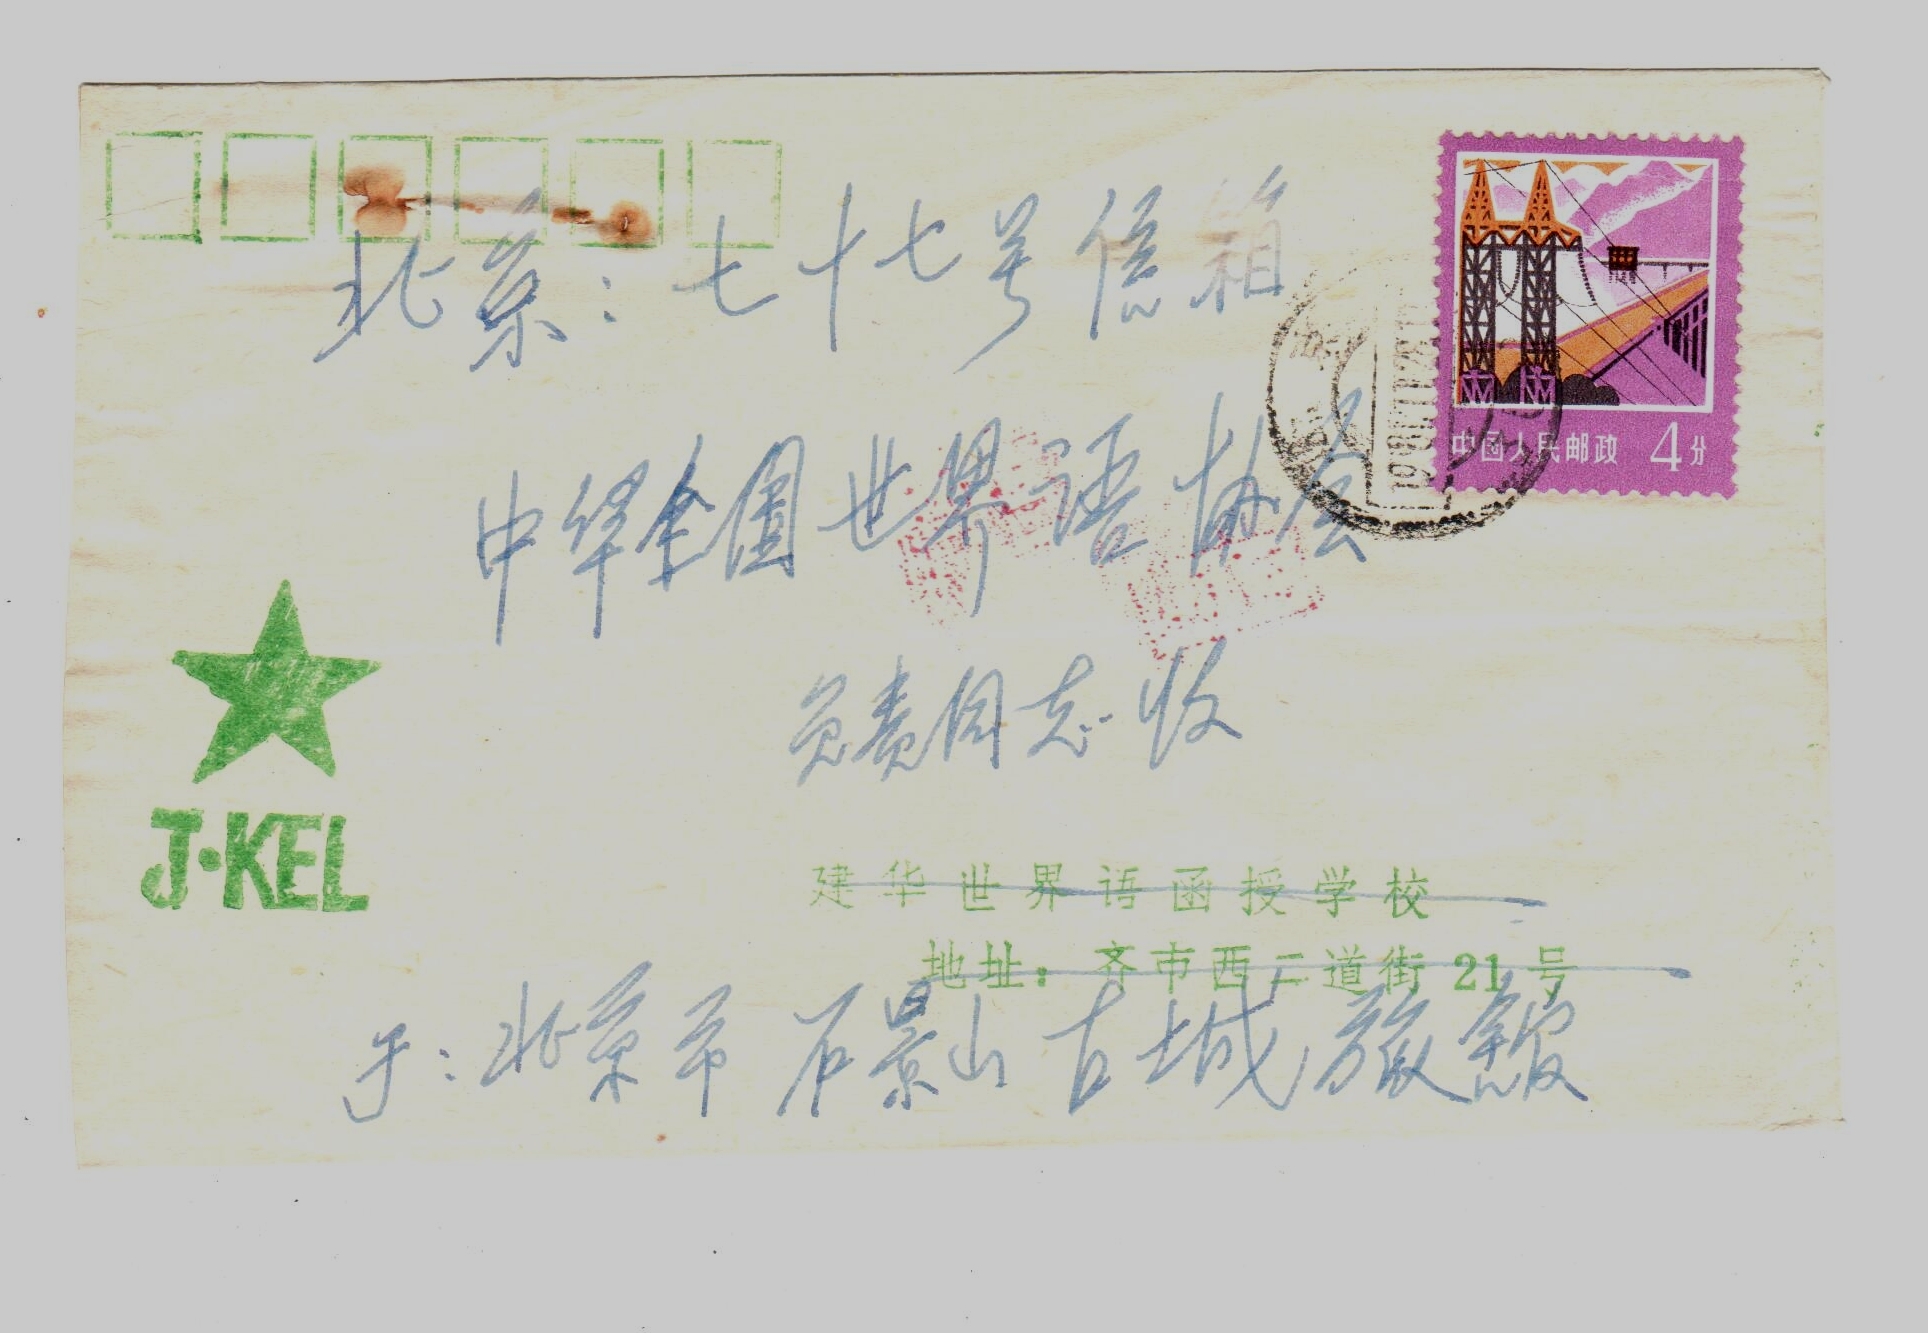 北京：七十七号信箱
中国人民邮政 4分
中华全国世界语协会
负责同志收
J·KEL
建华世界语函授学校
地址：齐市西二道街 21 号
于：北京市石景山古城旅館